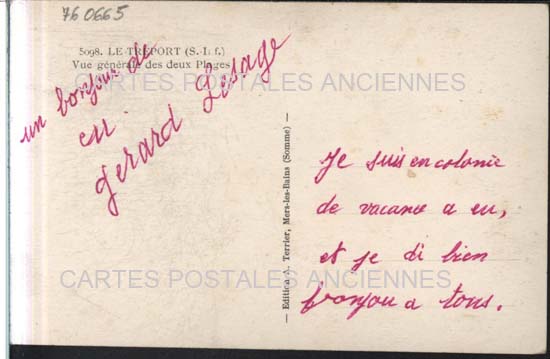 76 0665
5098. LE TRÉPORT (S.-I. f.)
Vue générale des deux Plages
un bonjour de
eu.
gerard Lesage
CARTES POSTALES ANCIENNES
— Edition A. Terrier, Mers-les-Bains (Somme) —
Je suis en colonie
de vacance a eu,
et je di bien
bonjou a tous.
CARTES POSTALES ANCIENNES